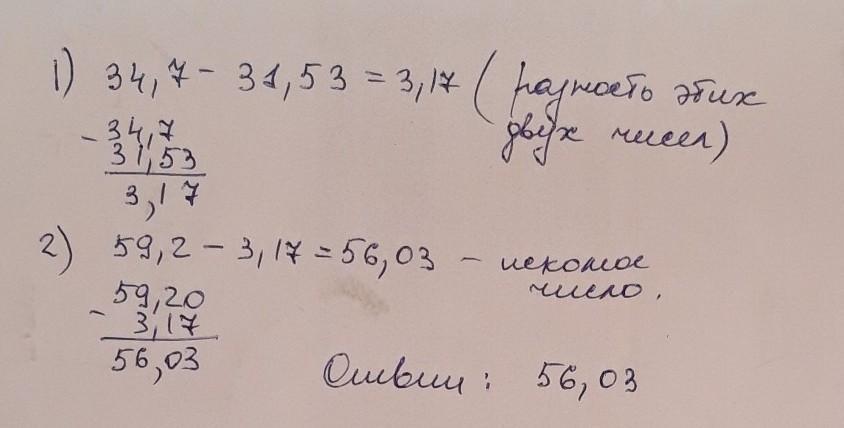 1) 34,7 - 31,53 = 3,17 (разность этих
двух чисел)
- 34,7
31,53
3,17
2) 59,2 - 3,17 = 56,03 - искомое
число.
- 59,20
3,17
56,03
Ответ: 56,03